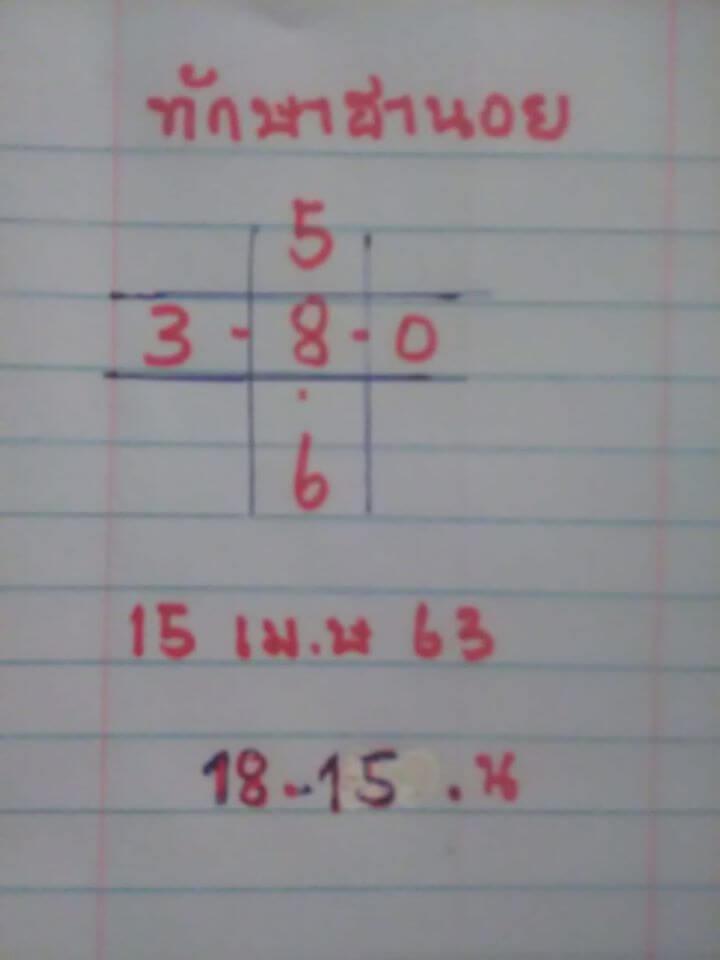 ทักษาฮานอย
5
3 - 8 - 0
.
6
15 เม.ษ 63
18.15 .น